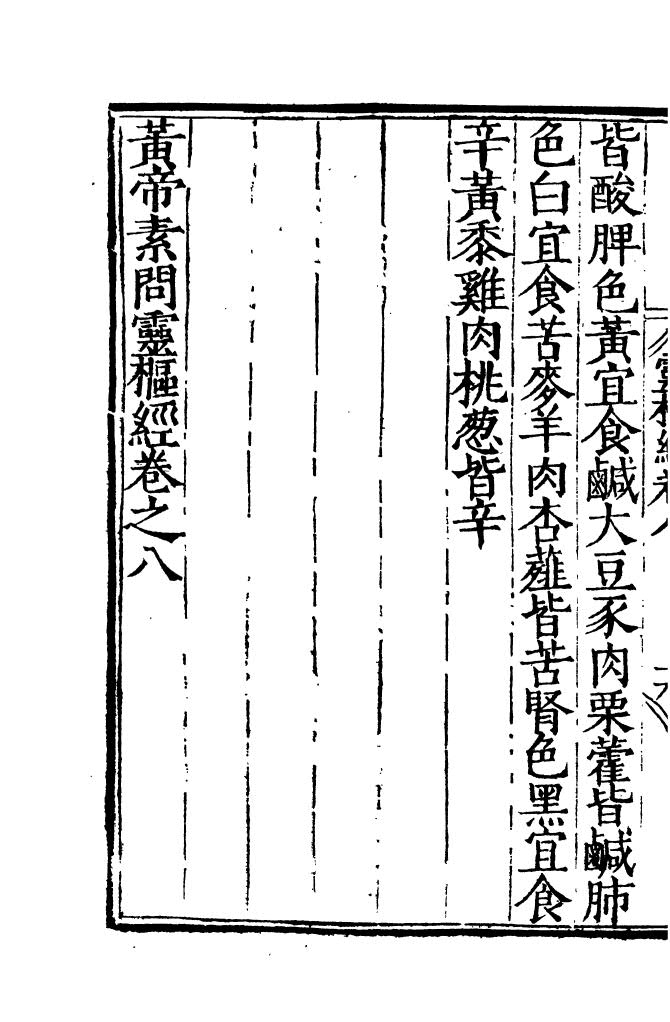 皆酸脾色黃宜食鹹大豆豕肉栗藿皆鹹肺
色白宜食苦麥羊肉杏薤皆苦腎色黑宜食
辛黃黍雞肉桃葱皆辛
黃帝素問靈樞經卷之八